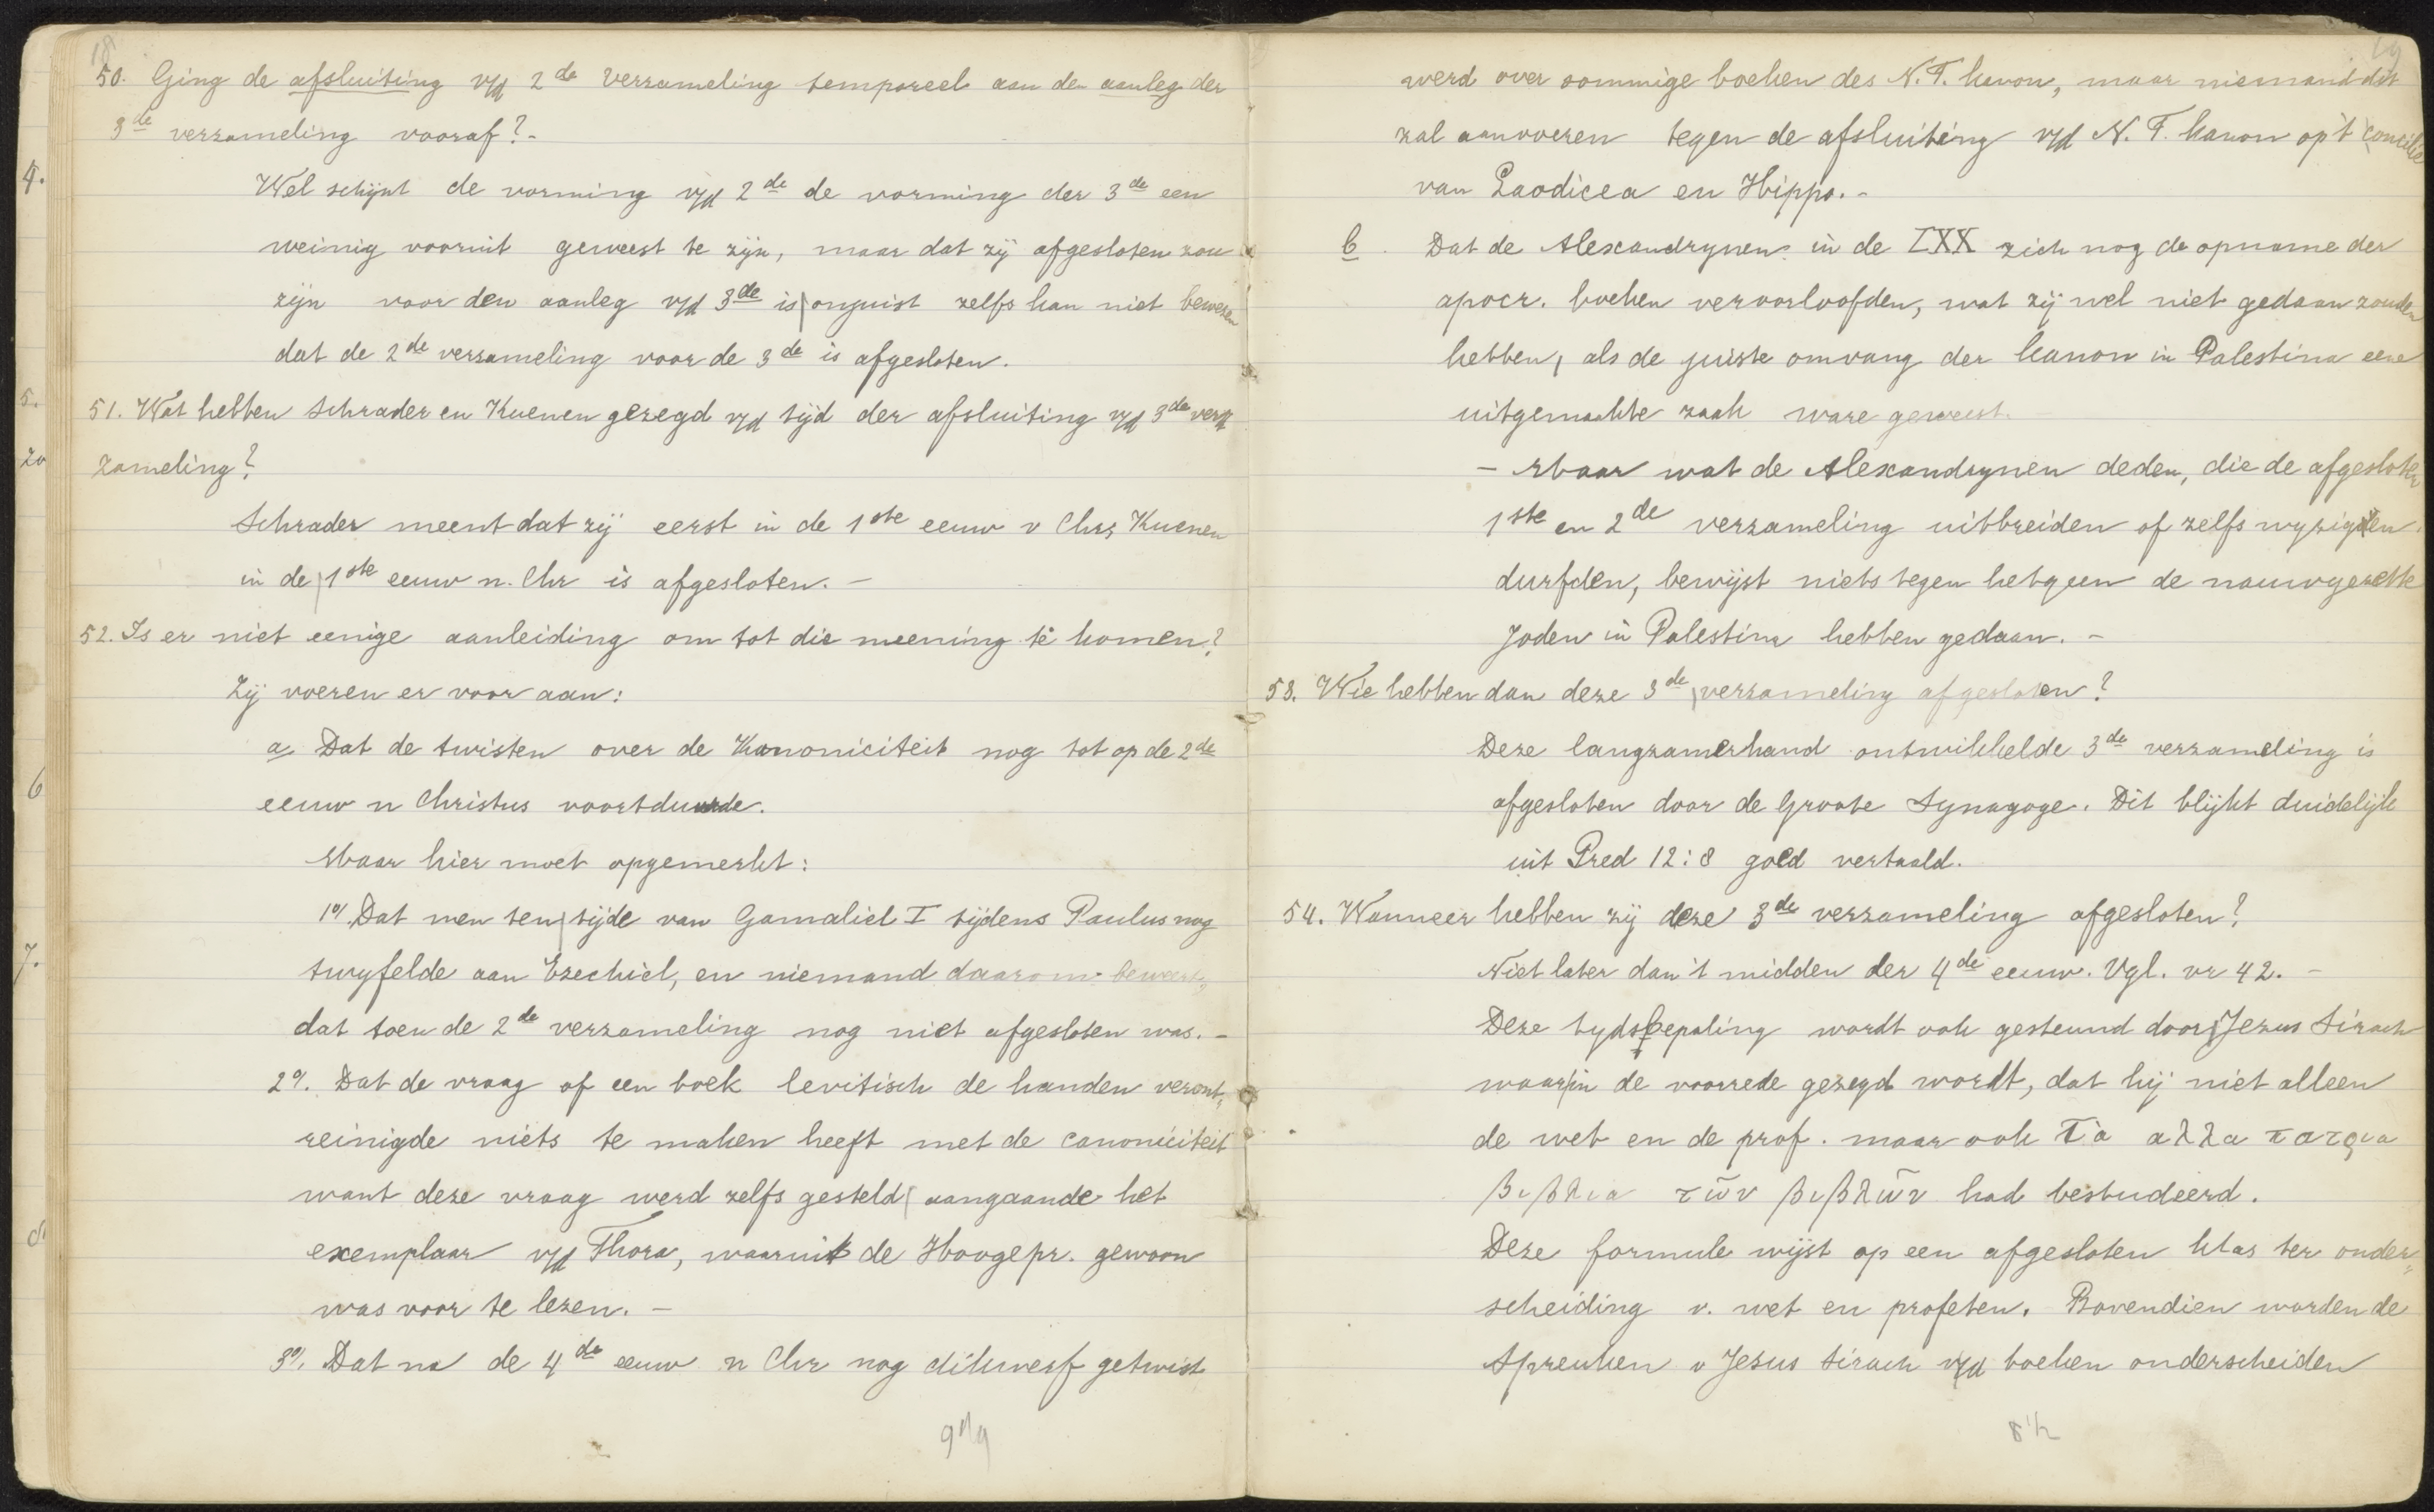 18
50. Ging de afsluiting v/d 2de Verzameling temporeel aan den aanleg der
3de verzameling vooraf? -
4.
Wel schijnt de vorming v/d 2de de vorming der 3de een
weinig vooruit geweest te zijn, maar dat zij afgesloten zou
zijn voor den aanleg v/d 3de is onjuist zelfs kan niet bewezen
dat de 2de verzameling voor de 3de is afgesloten.
5.
51. Wat hebben Schrader en Kuenen gezegd v/d tijd der afsluiting v/d 3de ver=
zameling?
Schrader meent dat zij eerst in de 1ste eeuw v Chr, Kuenen
in de 1ste eeuw n. Chr is afgesloten. -
52. Is er niet eenige aanleiding om tot die meening te komen?
Zij voeren er voor aan:
a Dat de twisten over de Kanoniciteit nog tot op de 2de
6
eeuw n Christus voortduurde.
Maar hier moet opgemerkt:
1o/. Dat men ten tijde van Gamaliel I tijdens Paulus nog
7.
twyfelde aan Ezechiel, en niemand daarom beweert,
dat toen de 2de verzameling nog niet afgesloten was. -
2o/. Dat de vraag of een boek levitisch de handen veront=
reinigde niets te maken heeft met de canoniciteit
want deze vraag werd zelfs gesteld aangaande het
exemplaar v/d Thora, waaruit de Hoogepr. gewoon
was voor te lezen. -
3o/. Dat na de 4de eeuw n Chr nog dikwerf getwist
19
werd over sommige boeken des N.T. kanon, maar niemand dit
zal aanvoeren tegen de afsluiting v/d N.T. kanon op 't concilie
van Laodicea en Hippo. -
b. Dat de Alexandrynen in de LXX zich nog de opname der
apocr. boeken veroorloofden, wat zij wel niet gedaan zouden
hebben, als de juiste omvang der kanon in Palestina eene
uitgemaakte zaak ware geweest. -
- Maar wat de Alexandrynen deden, die de afgesloten
1ste en 2de verzameling uitbreiden of zelfs wyzigen
durfden, bewijst niets tegen hetgeen de nauwgezette
Joden in Palestina hebben gedaan. -
53. Wie hebben dan deze 3de verzameling afgesloten?
Deze langzamerhand ontwikkelde 3de verzameling is
afgesloten door de Groote Synagoge. Dit blijkt duidelijk
uit Pred 12:8 goed vertaald.
54. Wanneer hebben zij deze 3de verzameling afgesloten?
Niet later dan 't midden der 4de eeuw. Vgl. vr 42. -
Deze tydsbepaling wordt ook gesteund door Jezus Sirach
waar in de voorrede gezegd wordt, dat hij niet alleen
de wet en de prof. maar ook τὰ αλλα πατρια
βιβλια τῶν βιβλῶν had bestudeerd.
Deze formule wijst op een afgesloten klas ter onder=
scheiding v. wet en profeten. Bovendien worden de
Spreuken v Jezus Sirach v/d boeken onderscheiden